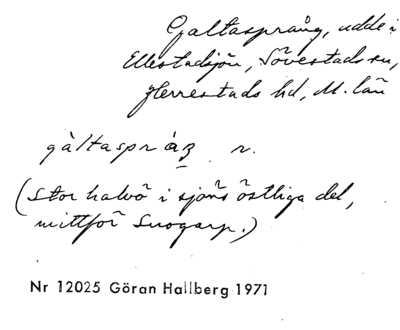 Galtasprång, udde i
Ellestadsjön, Sövestads sn,
Herrestads hd, M. län
gàltaspráz n.
(Stor halvö i sjöns östliga del,
mittför Snogarp.)
Nr 12025 Göran Hallberg 1971